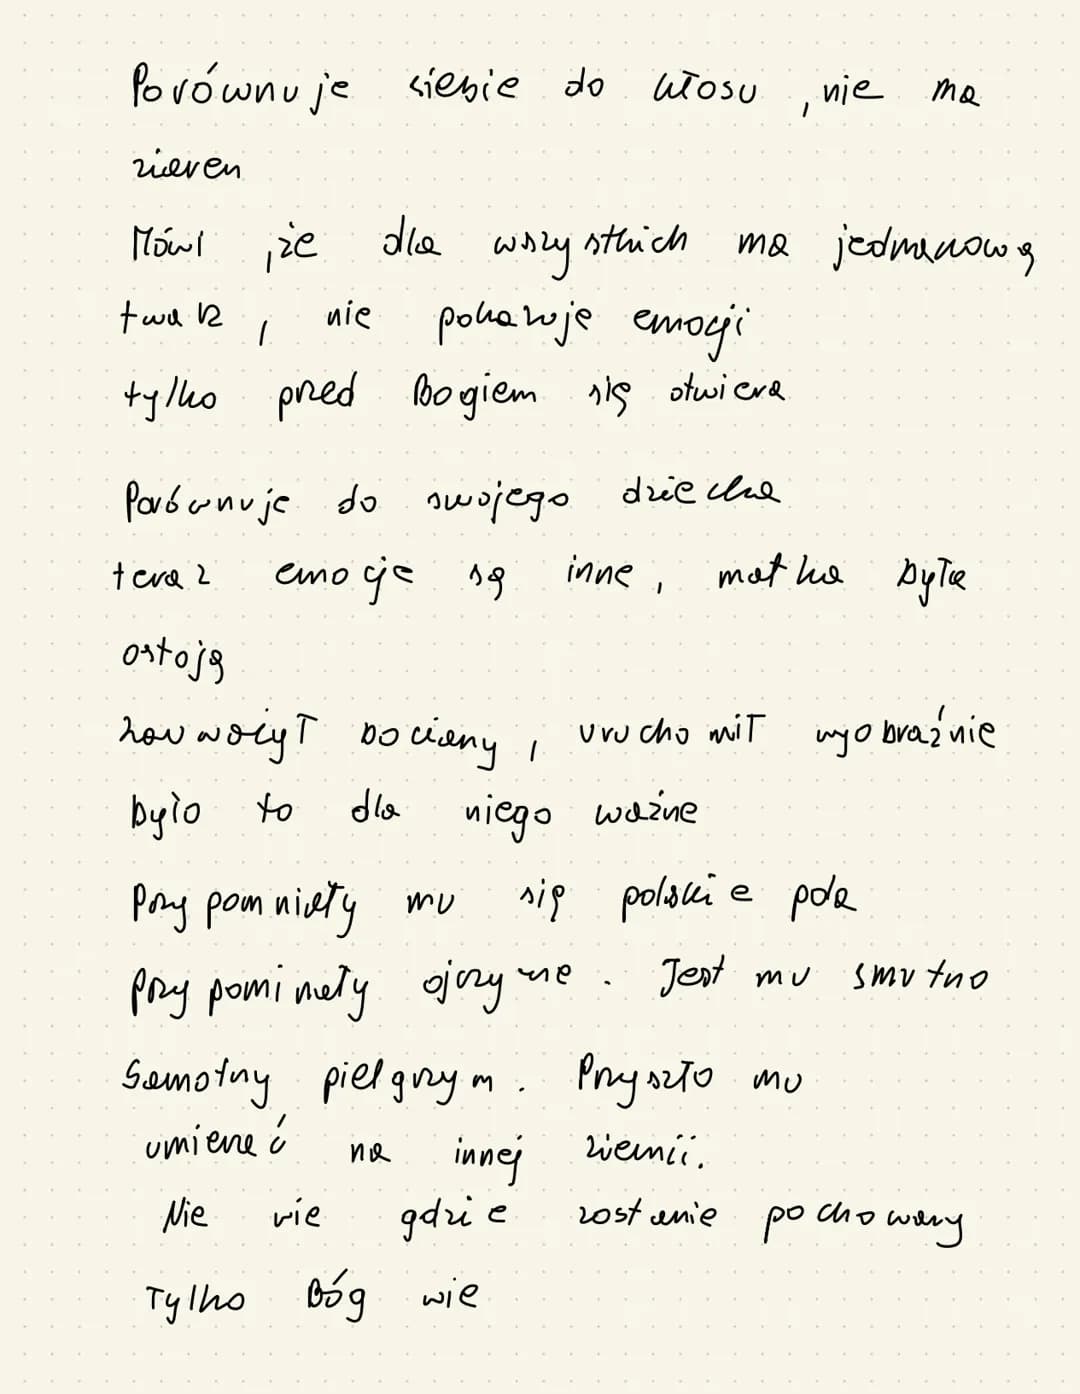 Porównuje siebie do kłosu, nie ma
ziaren
Mówi, że dla wszystkich ma jednanową
twarz, nie pokazuje emocji
tylko przed Bogiem się otwiera
Porównuje do swojego dziecka
teraz emocje są inne, matka była
ostoją
zauważył bociany, uruchomił wyobraźnie
było to dla niego ważne
Przypomniały mu się polskie pola
Przypominały ojczyznę. Jest mu smutno
Samotny pielgrzym. Przyszło mu
umierać na innej ziemii.
Nie wie gdzie zostanie pochowany
Tylko Bóg wie